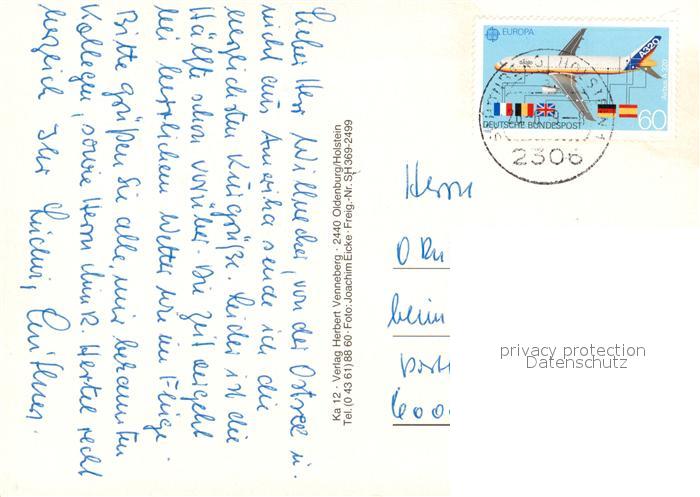 Lieber Herr Willmecher, von der Ostsee u.
nicht aus Amerika sende ich die
herzlichsten Kurgrüße. Leider ist die
Hälfte schon vorüber. Die Zeit vergeht
bei herrlichem Wetter wie im Fluge.
Bitte grüßen Sie alle mir bekannten
Kollegen, sowie Herrn Hertel recht
herzlich Ihr
Ka 12 · Verlag Herbert Venneberg · 2440 Oldenburg/Holstein
Tel. (0 43 61) 88 60 · Foto: Joachim Eicke · Freig.-Nr. SH 369-2499
EUROPA
A320
Airbus A 320
DEUTSCHE BUNDESPOST
60
2306
Herrn
beim
privacy protection
Datenschutz